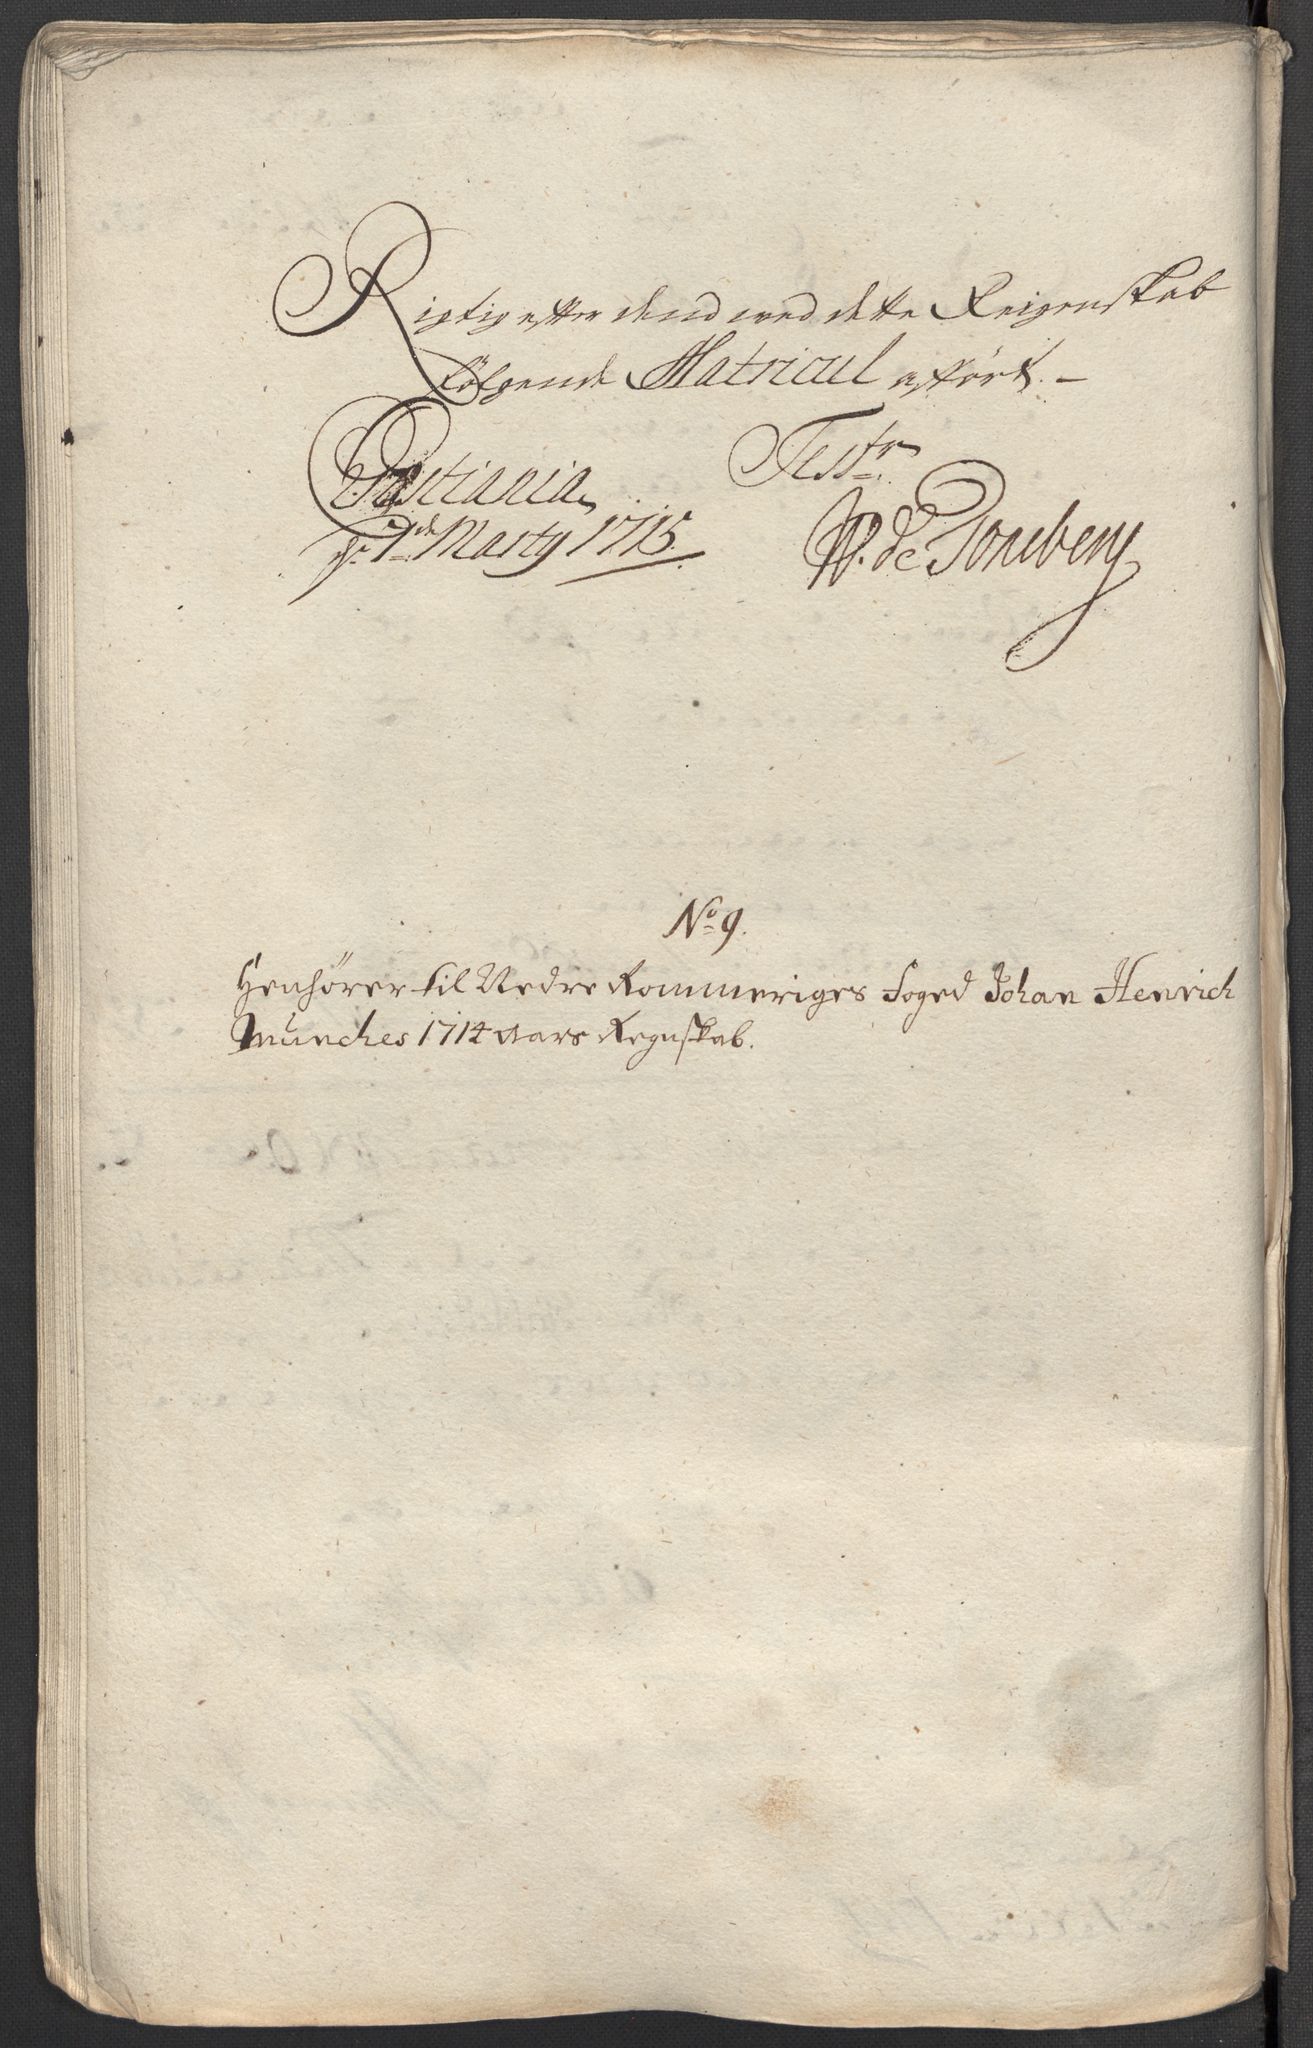 Rigtig efter dend med dette Reigenskab
følgende Matricul esført. –
Cristiania Testr
d: 1de Marty 1715. P. de Tonsberg
No 9.
Henhører til Nedre Rommeriges Foged Johan Henrich
Münches 1714 aars Regnskab.